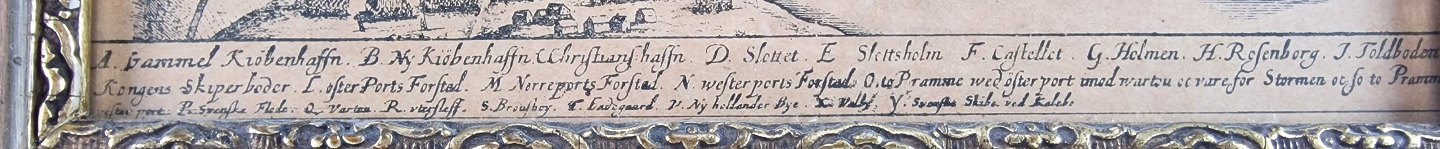 A. Gammel Kiöbenhaffn. B. Ny Kiöbenhaffn. C Christianshaffn. D Slottet. E Slottsholm F. Castellet G. Holmen. H. Rosenborg. I. Toldboden
Kongens Skiperboder. L. öster Ports Forstad. M. Norreports Forstad. N. westerports Forstad. O. to Pramme wed österport imod wartou oc vare for Stormen oc so to Pramm
wester port. P. Svenske Flode. Q. Vartou. R. S. Brönshoy. T. Ladegaard. V. Ny hollander Bye. X. Valby. Y. Svenske Skibe ved Kalebo